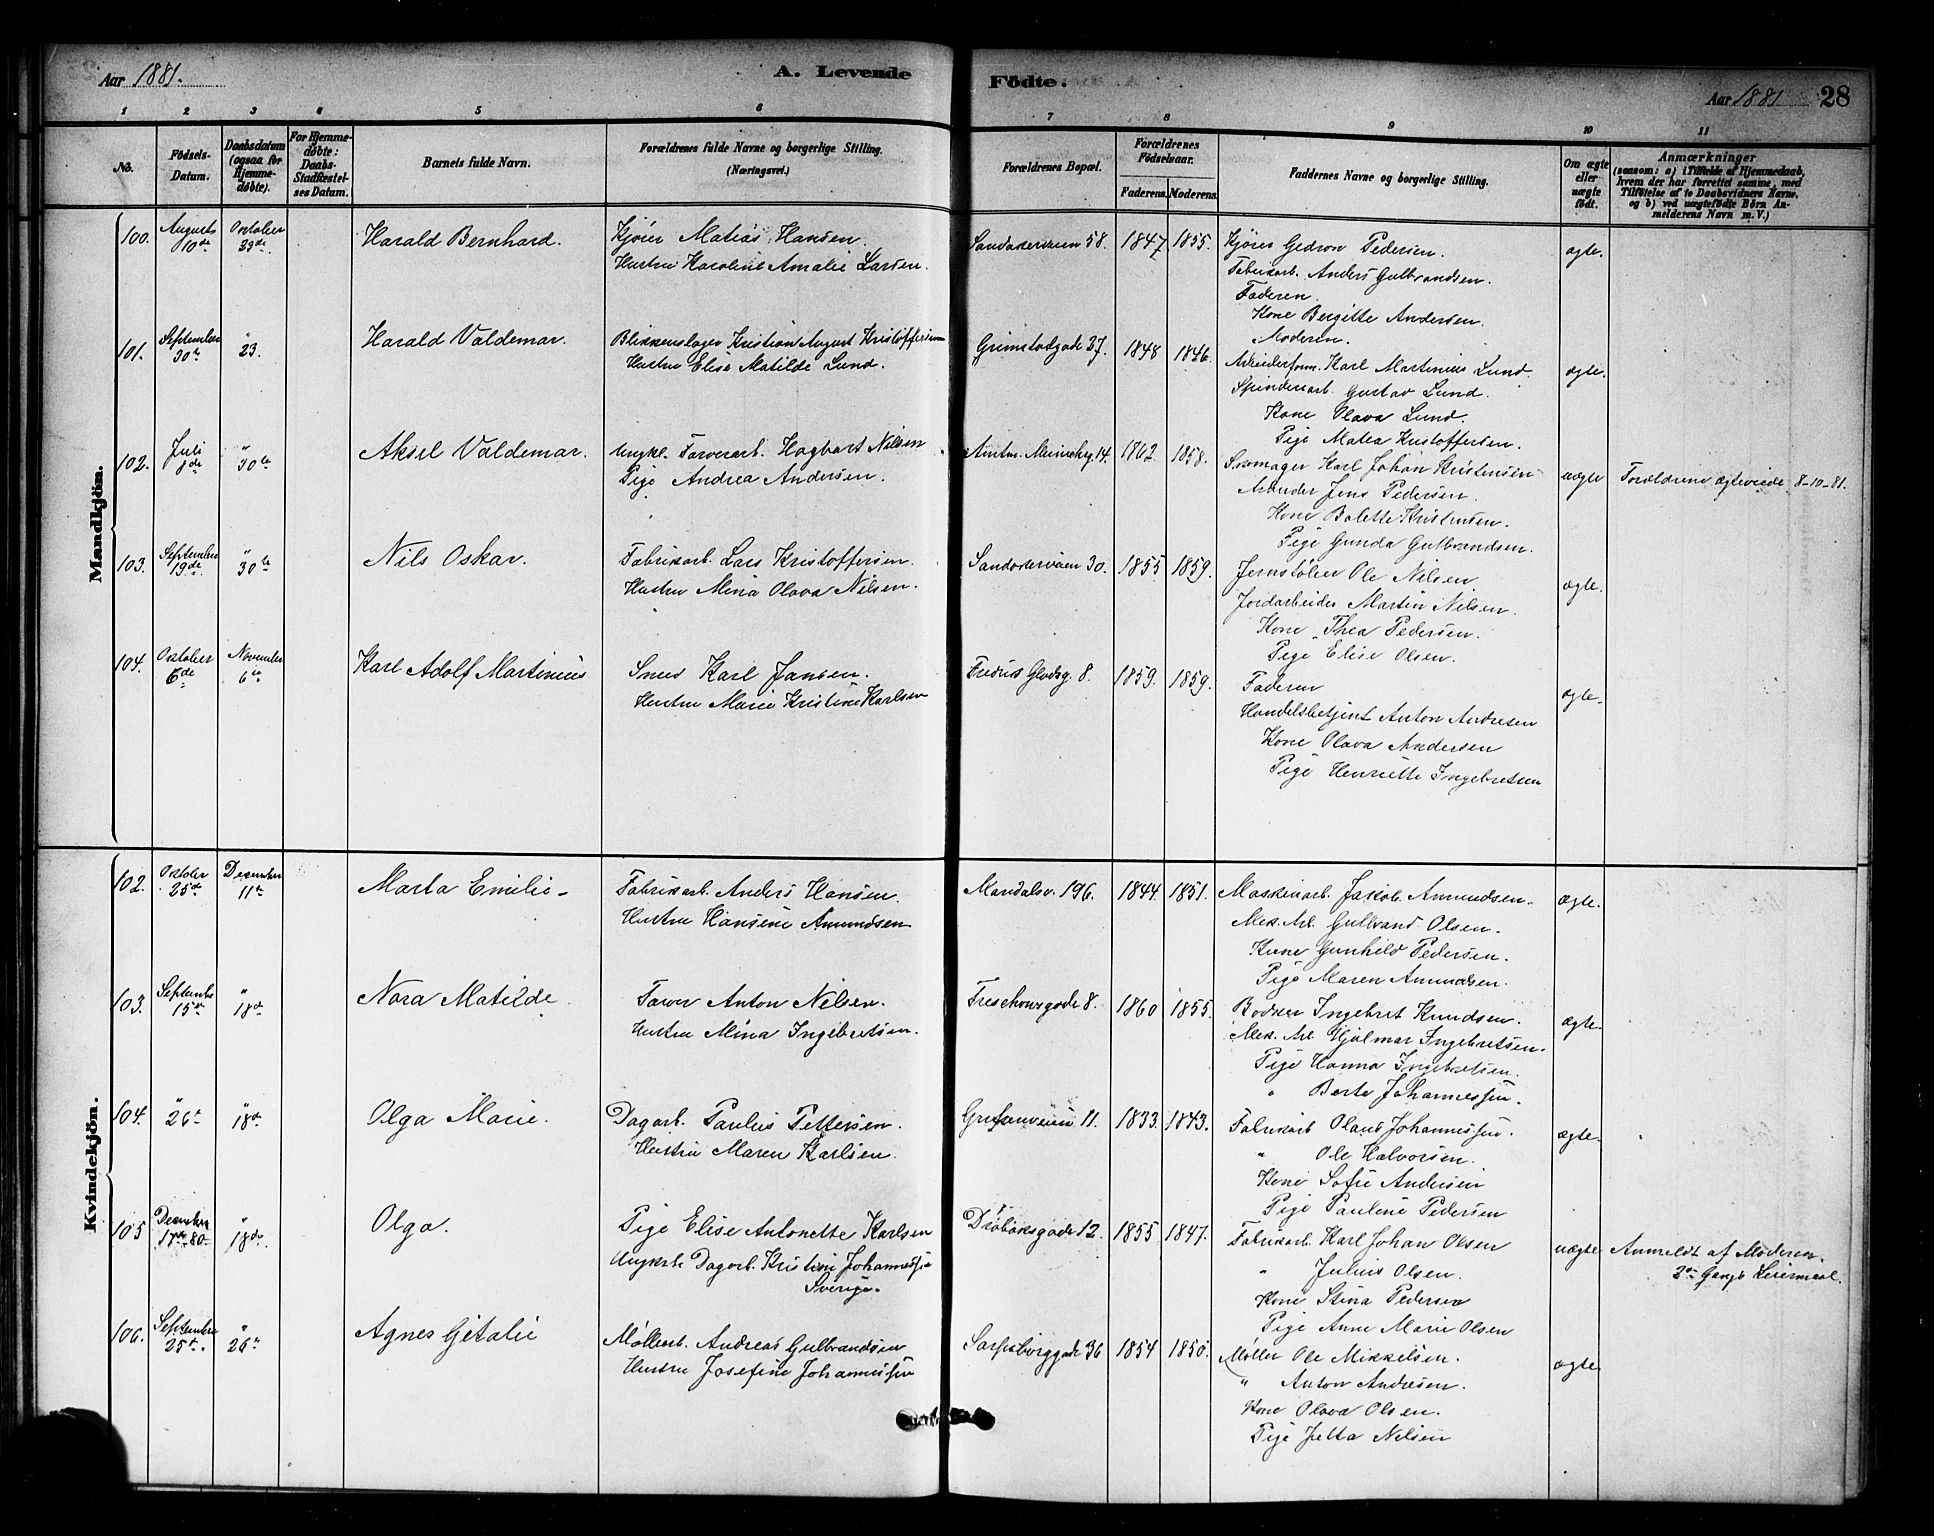 Aar 1881.
A. Levende
Födte.
Aar 1881
28
1 2 3 4 5 6 7 8 9 10 11
No.
Födsels-Datum.
Daabsdatum (ogsaa for Hjemmedøbte).
For Hjemmedøbte: Daabs-Stadfæstelses Datum.
Barnets fulde Navn.
Forældrenes fulde Navne og borgerlige Stilling.
(Næringsvei.)
Forældrenes Bopæl.
Forældrenes Födselsaar.
Faderens. Moderens.
Faddernes Navne og borgerlige Stilling.
Om ægte eller uægte födt.
Anmærkninger
(saasom: a) i Tilfælde af Hjemmedaab, hvem der har forrettet samme, med Tilføielse af to Daabsvidners Navne, og b) ved uægtefødte Börn Anmelderens Navn m. V.)
Mandkjön.
100. Augusts 10de Oktober 23de Harald Bernhard. Kjører Matias Hansen. Sandakerveien 58. 1847 1855. Kjører Gedron Pedersen. ægte.
Hustru Karoline Amalie Larsen. Fabrikarb. Anders Gulbrandsen.
Faderen.
Kone Bergitte Andersen.
Moderen.
101. September 30te " 23. Harald Valdemar. Blikkenslager Kristian August Kristoffersen Grimstadgade 27. 1848 1846. Arbeiderform. Karl Martinius Lund. ægte.
Hustru Elise Matilde Lund. Spinderiarb. Gustav Lund.
Kone Olava Lund.
Pige Matea Kristoffersen.
102. Juli 1de " 30te Aksel Valdemar. Ungkl. Farverarb. Hagbart Nilsen Amtm. Meinichg 14. 1862. 1858. Skomager Karl Johan Kristensen uægte Forældrene ægteviede 8-10-81.
Pige Andrea Andersen. Arbeider Jens Pedersen.
Kone Bolette Kristensen.
Pige Gunda Gulbrandsen.
103. September 19de " 30te Nils Oskar. Fabrikarb. Lars Kristoffersen Sandakerveien 30. 1855 1859. Jernstøber Ole Nilsen ægte.
Hustru Mina Olava Nilsen. Jordarbeider Martin Nilsen.
Kone Thea Pedersen.
Pige Elise Olsen.
104. Oktober 6de November 6te Karl Adolf Martinius Smed Karl Jansen. Fredrik Gladsg. 8. 1859. 1859. Faderen ægte.
Hustru Marie Kristine Karlsen Handelsbetjent Anton Andresen
Kone Olava Andersen
Pige Henriette Ingebretsen
Kvindekjön.
102. Oktober 25de December 11te Marta Emilie Fabrikarb. Anders Hansen. Mandalsv. 196. 1844. 1851. Maskinarb. Jakob Amundsen. ægte.
Hustru Hansine Amundsen Mek. Arb. Gulbrand Olsen.
Kone Gunhild Pedersen.
Pige Maren Amundsen.
103. September 15de " 18de Nora Matilde Farver Anton Nilsen. Treschowsgade 8. 1860 1855. Bødker Ingebret Knudsen. ægte.
Hustru Mina Ingebretsen. Mek. Arb. Hjalmar Ingebretsen.
Pige Hanna Ingebretsen.
" Berte Johannessen.
104. " 26te " 18de Olga Marie. Dagarb. Paulus Pettersen. Grefsenveien 11. 1833. 1843. Fabrikarb Olaus Johannessen. ægte.
Hustru Maren Karlsen. " Ole Halvorsen.
Kone Sofie Andersen
Pige Pauline Pedersen
105 December 17de 80 " 18de Olga. Pige Elise Antonette Karlsen Drøbaksgade 12. 1855 1847. Fabrikarb. Karl Johan Olsen uægte Anmeldt af Moderen.
Ungkarl Dagarb. Kristine Johannessen " Julius Olsen. 2det Gangs Leiermaal.
Sverige. Kone Stina Pedersen
Pige Anne Marie Olsen
106. September 25de. " 26te Agnes Getalie Møllearb. Andreas Gulbrandsen Sarpsborggade 36 1854 1850. Møller Ole Mikkelsen. ægte
Hustru Josefine Johannessen " Anton Andresen.
Kone Olava Olsen.
Pige Jetta Nilsen